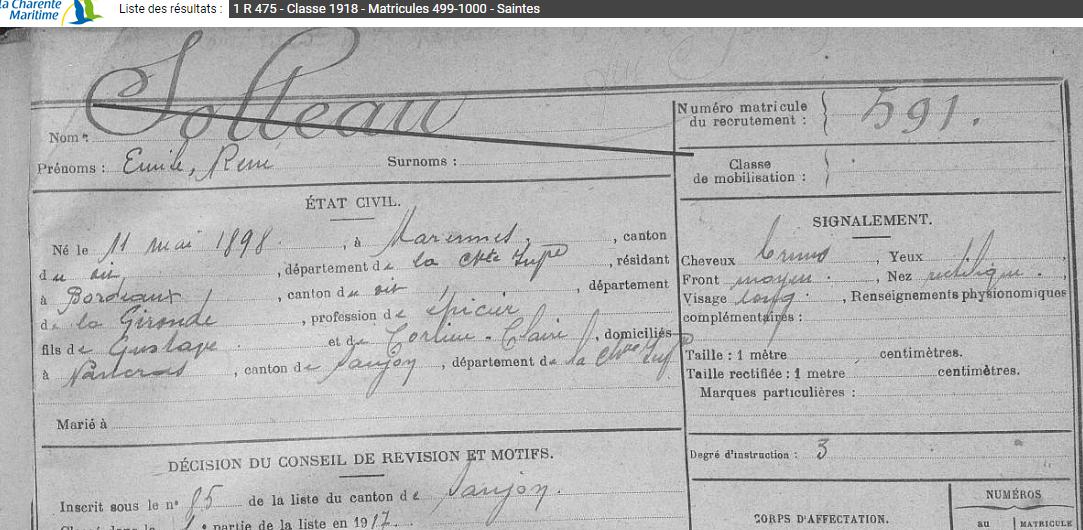 la Charente
Maritime
Liste des résultats : 1 R 475 - Classe 1918 - Matricules 499-1000 - Saintes
Nom : Solleau
Numéro matricule
du recrutement : 591.
Prénoms : Emile, René Surnoms :
Classe
de mobilisation :
ÉTAT CIVIL.
Né le 11 mai 1898. , à Marennes, , canton
du dit, , département de la Chte Infre , résidant
à Bordeaux , canton du dit , département
de la Gironde , profession de épicier
fils de Gustave et de Claire , domiciliés
à Nancras , canton de Saujon , département de la Chte Infre
Marié à
SIGNALEMENT.
Cheveux bruns , Yeux
Front moyen . , Nez rectiligne .
Visage long . , Renseignements physionomiques
complémentaires :
Taille : 1 mètre centimètres.
Taille rectifiée : 1 mètre centimètres.
Marques particulières :
Degré d'instruction : 3
DÉCISION DU CONSEIL DE REVISION ET MOTIFS.
Inscrit sous le n° 85 de la liste du canton de Saujon.
partie de la liste en 1917.
CORPS D'AFFECTATION.
NUMÉROS
au MATRICULE